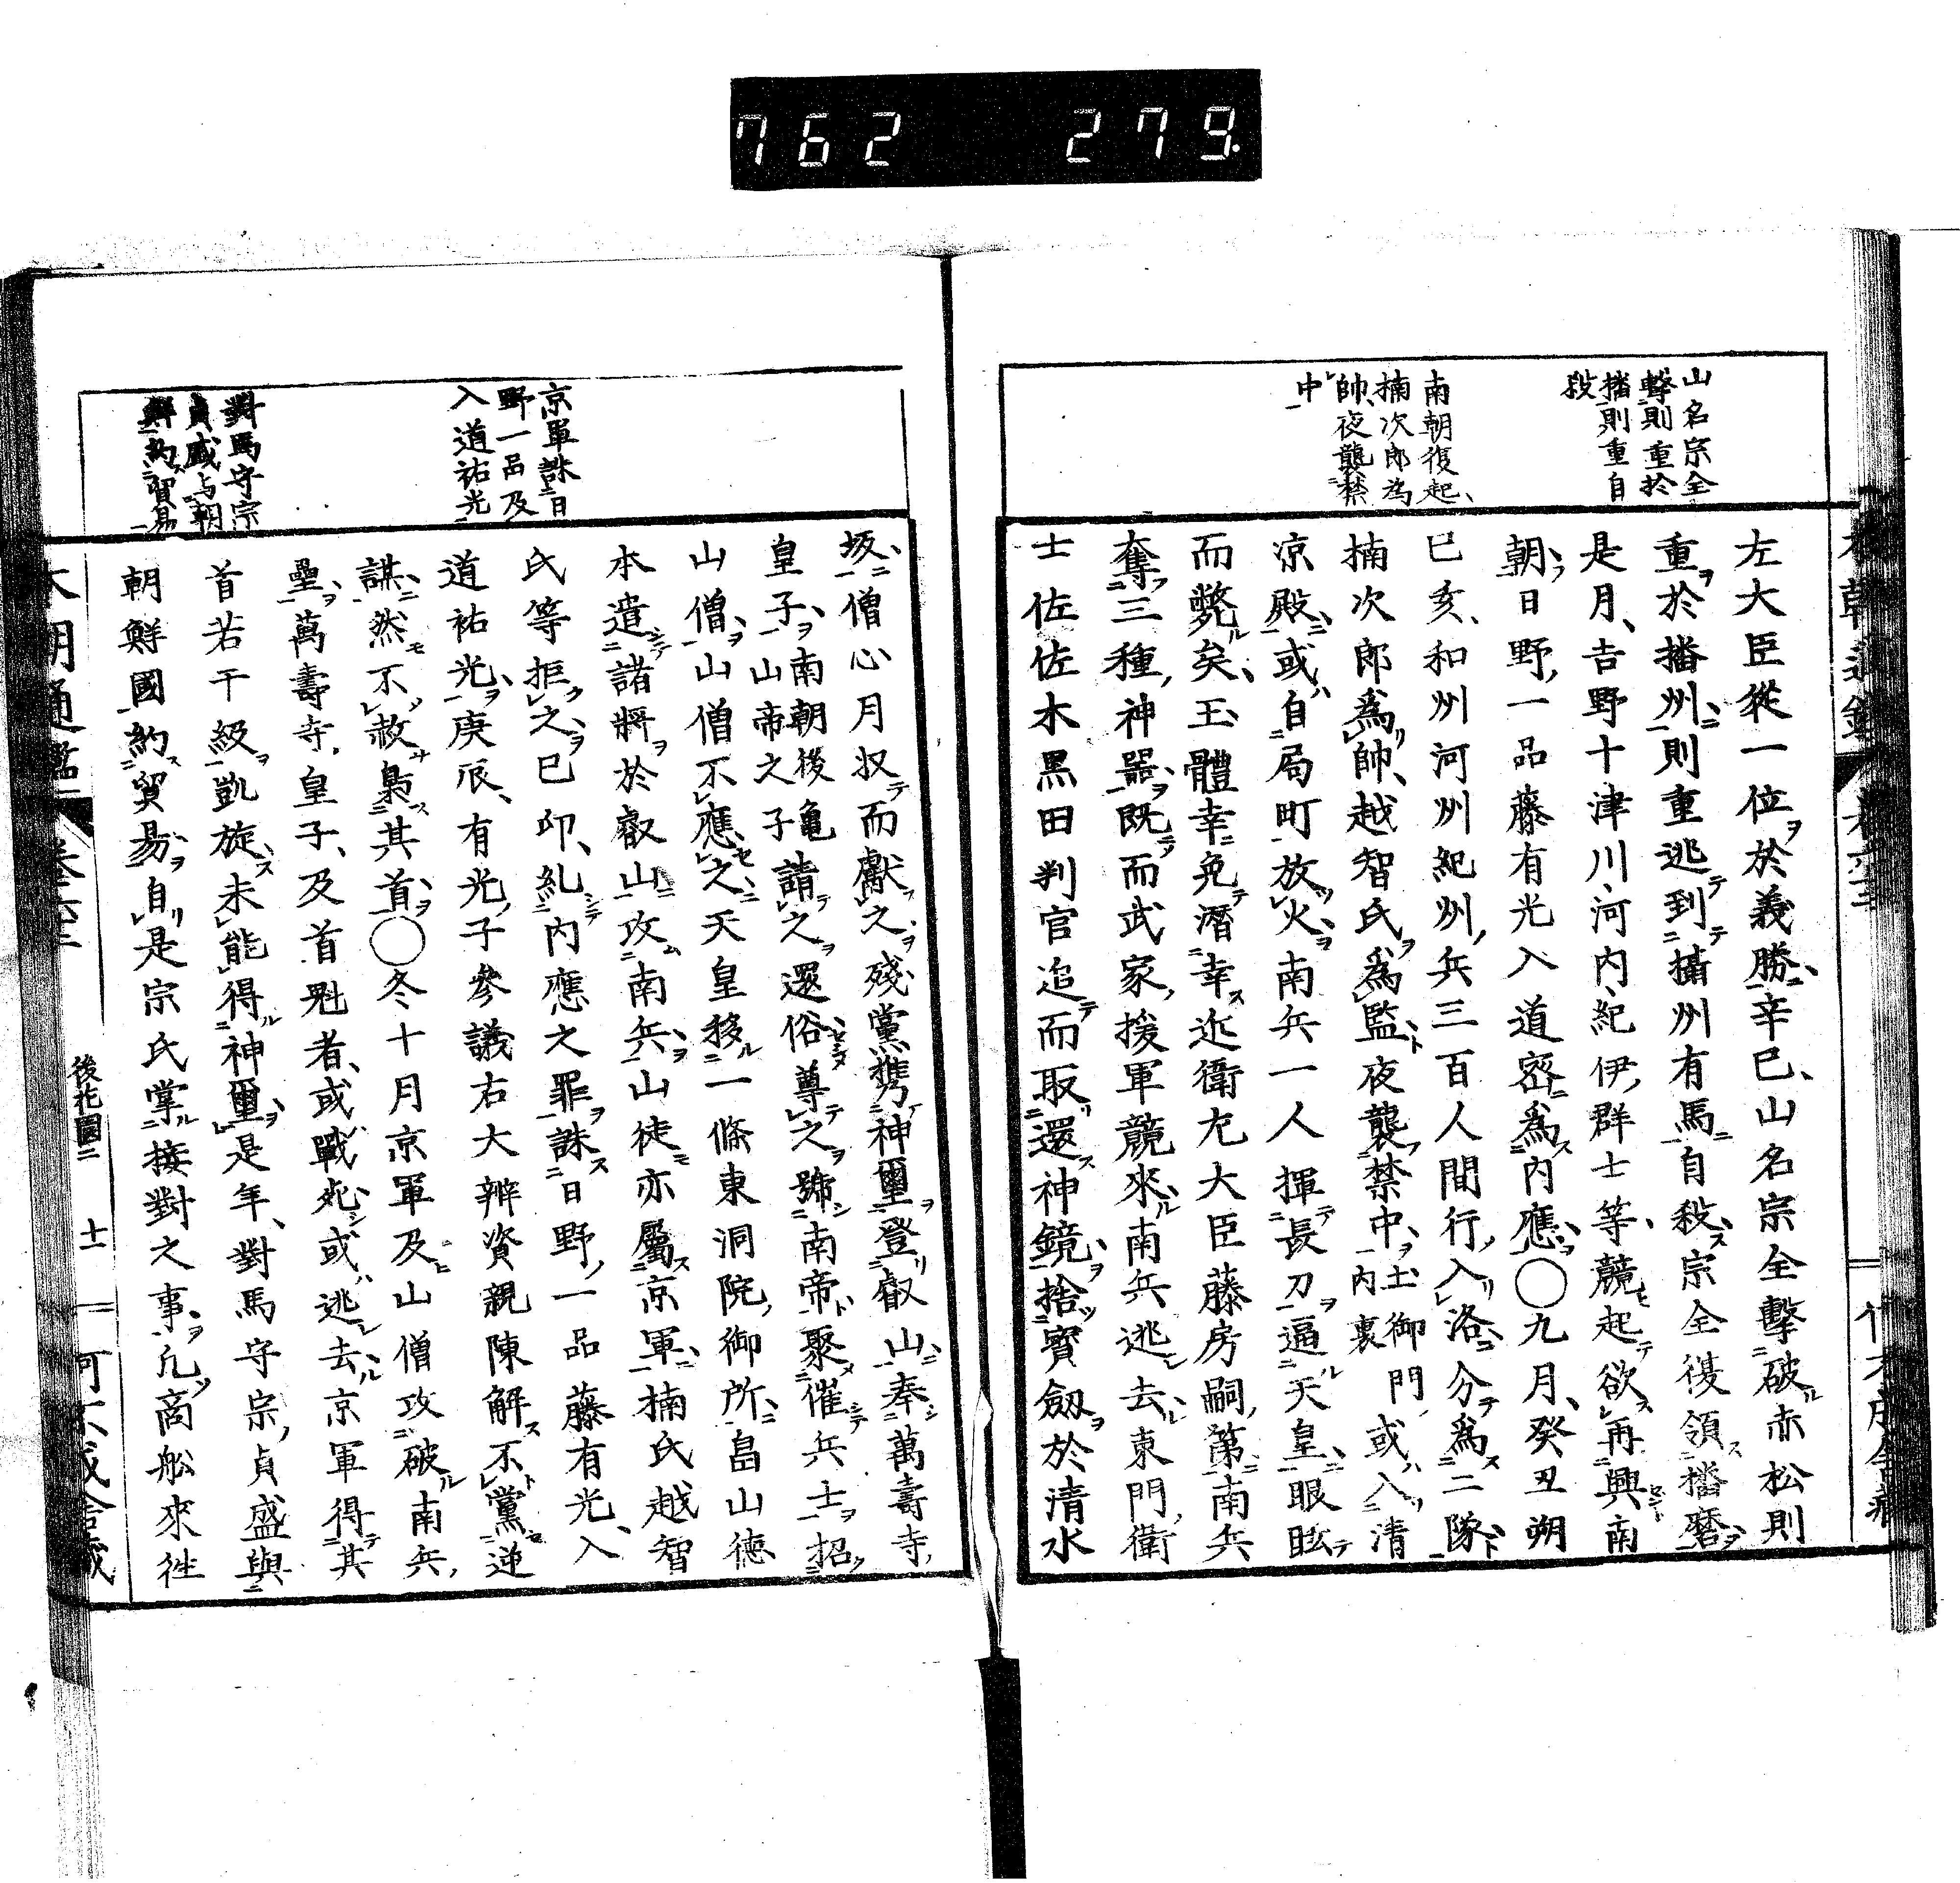 762 279.
山名宗全
撃則重於
播則重自
殺
南朝復起、
楠次郎為
帥、夜襲禁
中
左大臣從一位於義勝、辛巳、山名宗全擊破赤松則
重於播州、則重逃到攝州有馬自殺、宗全復領播磨、
是月、吉野十津川、河内、紀伊、群士等、競起欲再興南
朝、日野、一品藤有光入道密爲内應、〇九月、癸丑朔
己亥、和州河州紀州、兵三百人間行、入洛、分爲二隊、
楠次郎爲帥、越智氏爲監、夜襲禁中、土御門内裏或入清
涼殿、或自局町放火、南兵一人揮長刀逼天皇、眼眩
而斃矣、玉體幸免潛幸近衛左大臣藤房嗣、第、南兵
奪三種、神器、既而武家、援軍競來、南兵逃去、東門、衛
士佐佐木黒田判官追而取還神鏡、捨寶劔於清水
坂、僧心月収而獻之、殘黨携神璽登叡山、奉萬壽寺、
皇子、南朝後亀山帝之子請之還俗尊之、號南帝、聚催兵士、招
山僧、山僧不應之、天皇移一條東洞院、御所、畠山徳
本遣諸將於叡山攻南兵、山徒亦屬京軍、楠氏越智
氏等拒之、已卯、糺内應之罪、誅日野、一品藤有光、入
道祐光、庚辰、有光、子參議右大辨資親陳解不黨逆
謀、然不赦梟其首、〇冬十月京軍及山僧攻破南兵、
壘、萬壽寺、皇子、及首魁者、或戰死、或逃去、京軍得其
首若干級、凱旋、未能得神璽、是年、對馬守宗、貞盛與
朝鮮國約貿易、自是宗氏掌接對之事、凡商舩來徃
京軍誅日
野一品及
入道祐光
對馬守宗
貞盛与朝
鮮約貿易
本朝通鑑 卷六十二 後花園二 十一